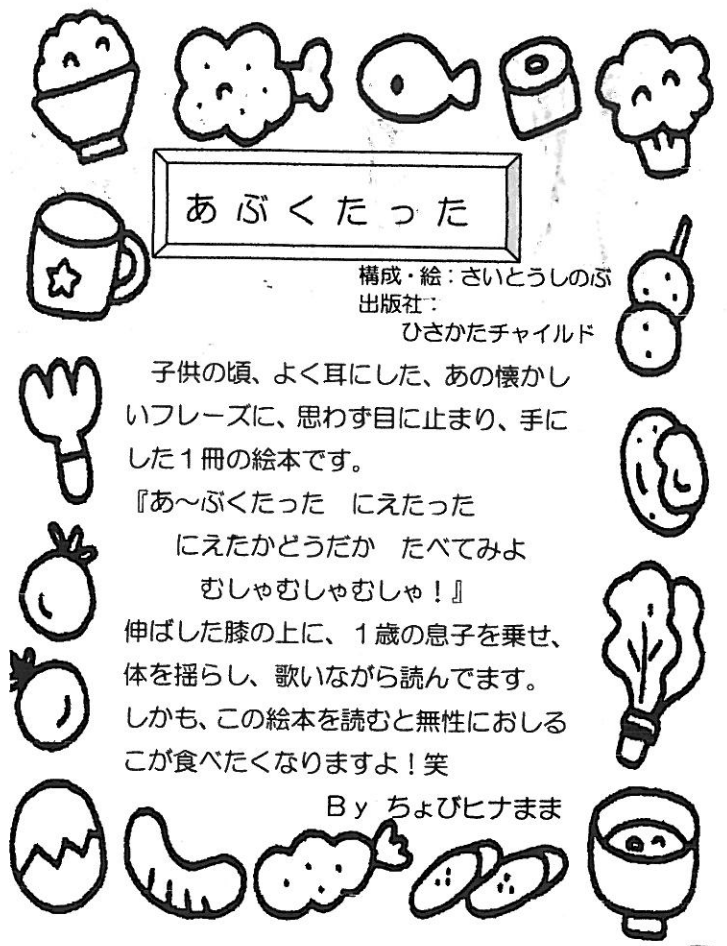 あぶくたった
構成・絵：さいとうしのぶ
出版社：
ひさかたチャイルド
子供の頃、よく耳にした、あの懐かし
いフレーズに、思わず目に止まり、手に
した１冊の絵本です。
『あ～ぶくたった　にえたった
にえたかどうだか　たべてみよ
むしゃむしゃむしゃ！』
伸ばした膝の上に、１歳の息子を乗せ、
体を揺らし、歌いながら読んでます。
しかも、この絵本を読むと無性におしる
こが食べたくなりますよ！笑
Ｂｙ　ちょびヒナまま